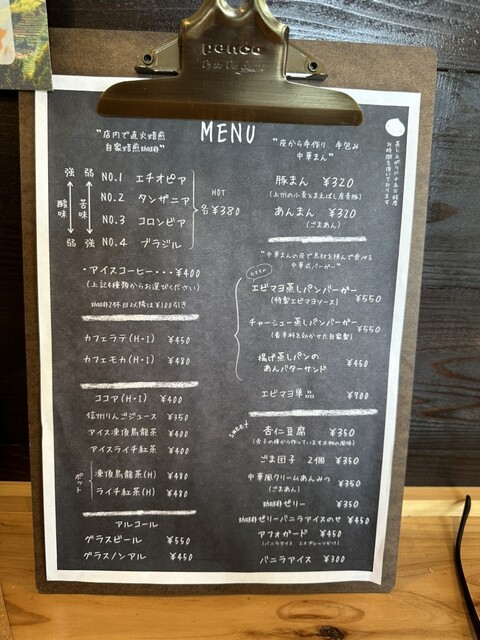 penco
MENU
"店内で直火焙煎
自家焙煎珈琲"
強 弱
酸味 苦味
弱 強
NO.1 エチオピア
NO.2 タンザニア
NO.3 コロンビア
NO.4 ブラジル
HOT
各¥380
・アイスコーヒー・・・¥400
(上記4種類からお選びください)
珈琲2杯目以降は¥100引き
カフェラテ(H・I) ¥450
カフェモカ(H・I) ¥480
ココア(H・I) ¥400
信州りんごジュース ¥350
アイス凍頂烏龍茶 ¥400
アイスライチ紅茶 ¥400
ポット
凍頂烏龍茶(H) ¥480
ライチ紅茶(H) ¥480
アルコール
グラスビール ¥550
グラスノンアル ¥450
"皮から手作り 手包み
中華まん"
蒸し上がりに十五分程度
お時間を頂いております
豚まん ¥320
(上州の小麦とまえばし産麦豚)
あんまん ¥320
(ごまあん)
"中華まんの皮で具材を挟んで食べる
中華式バーガー"
おすすめ
エビマヨ蒸しパンバーガー ¥550
(特製エビマヨソース)
チャーシュー蒸しパンバーガー ¥550
(香辛料を効かせた自家製)
揚げ蒸しパンの
あんバターサンド ¥450
エビマヨ単品 ¥700
sweets
杏仁豆腐 ¥350
(杏子の種から作っています本物の風味)
ごま団子 2個 ¥350
中華風クリームあんみつ ¥350
(ごまあん)
珈琲ゼリー ¥350
珈琲ゼリーバニラアイスのせ ¥450
アフォガード ¥450
(バニラアイス エスプレッソがけ)
バニラアイス ¥300